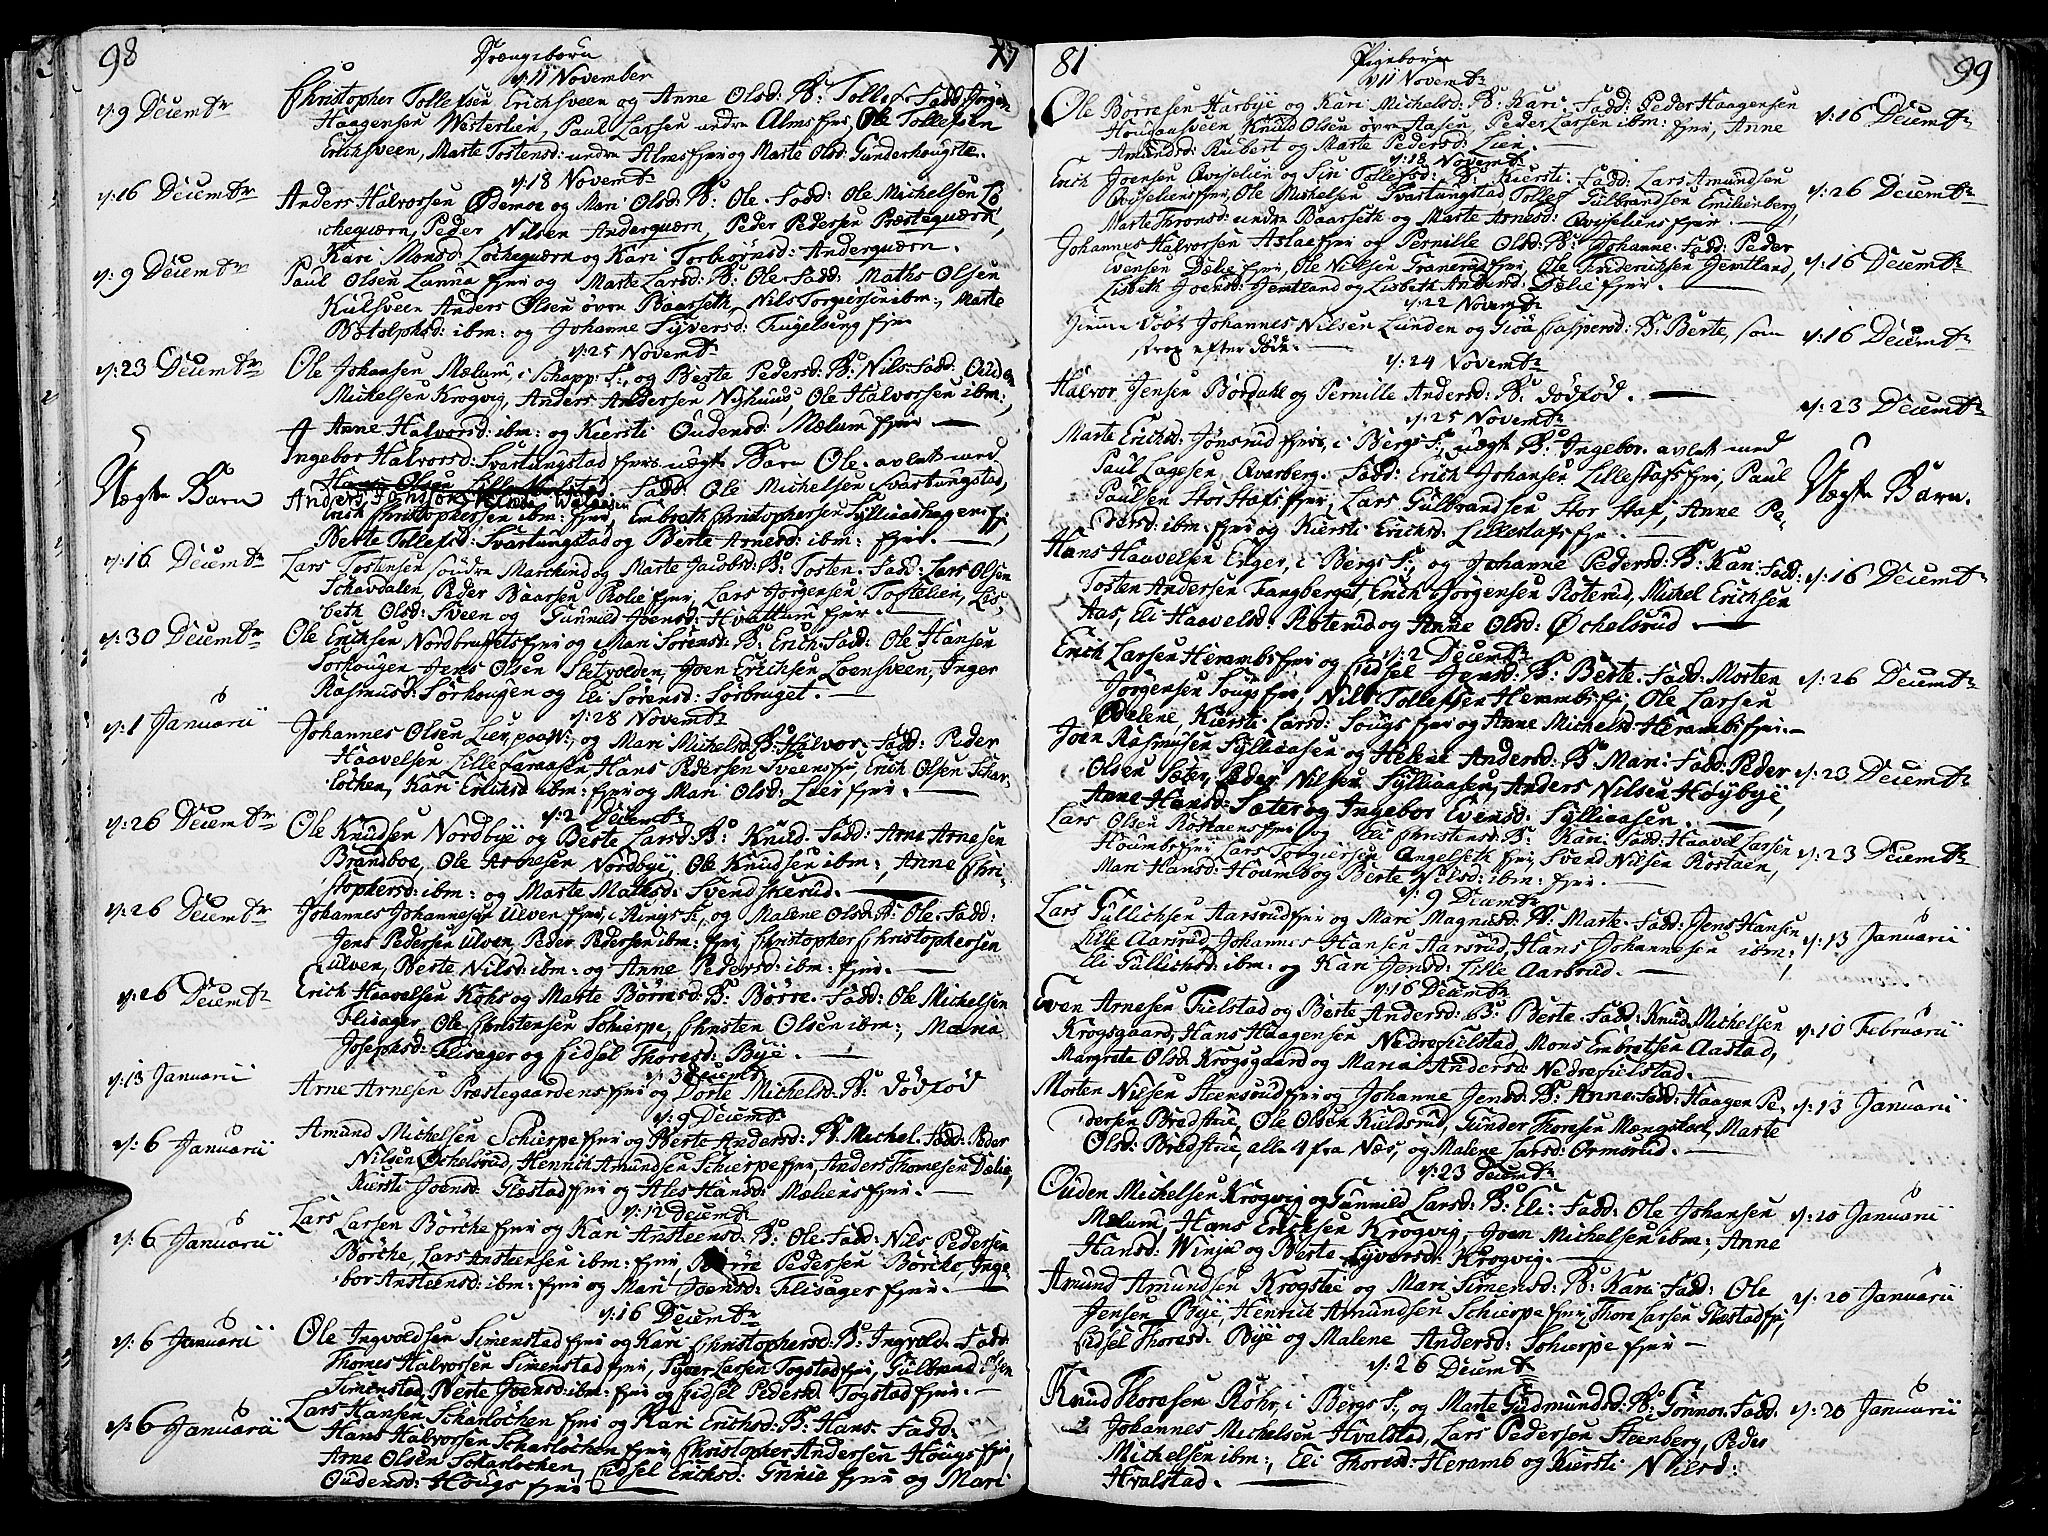 98
Drængebørn
77
d: 11 November
d: 9 Decembr
Christopher Tollefsen Erichsveen og Anne Olsd: B: Tollef Fadd: Jørgen
Haagensen Westerlien, Paul Larsen undre Alms fjer, Ole Tollefsen
Erichsveen, Marte Tostensd: undre Alms fjer og Marte Olsd: Gunderhougste.
d: 18 Novembr
d: 16 Decembr
Anders Halvorsen Ødemoe og Mari Olsd: B: Ole. Fadd: Ole Michelsen Lö-
chequærn, Peder Nilsen Anderquærn, Peder Pedersen Præstequærn,
Kari Monsd: Löchequærn og Kari Torbiörnsd: Anderquærn.
d: 9 Decembr
Paul Olsen Lunna fjer og Marte Larsd: B: Ole. Fadd: Maths Olsen
Kulsveen Anders Olsen øvre Baarseth, Nils Torgersen ibm:, Marte
Botolphsd: ibm: og Johanne Syversd: Fugelseng fjer
d: 25 Novembr
d: 23 Decembr
Ole Johansen Mælum, i Schapp: S:, og Berte Pedersd: B: Nils. Fadd: Ouden
Michelsen Krogvig, Anders Andersen Nyhuus, Ole Halvorsen ibm:,
Anne Halvorsd: ibm: og Kiersti Oudensd: Mælum fjer
Uægte Barn
Ingebor Halvorsd: Svartungstad fjer uægte Barn Ole. avlet med
Anders Fadd: Ole Michelsen Svartungstad,
Erich Christophersen ibm: fjer, Embreth Christophersen Sylliaashagen fj
Berte Tollefsd: Svartungstad og Berte Arnesd: ibm: fjer.
d: 16 Decembr
Lars Tostensen söndre Marckind og Marte Jacobsd: B: Tosten. Fadd: Lars Olsen
Schavdalen, Peder Baarsen Rolie fjer, Lars Jörgensen Tostelien, Lis-
beth Olsd: Sveen og Gunnild Joensd: Hvattum fjer.
d: 30 Decembr
Ole Erichsen Nordbrufets fjer og Mari Sörensd: B: Erich. Fadd: Ole Hansen
Sörhougen Jens Olsen Sletvolden, Joen Erichsen Loensveen, Inger
Rasmusd: Sörhougen og Eli Sörensd: Sörbruget.
d: 28 Novembr
d: 1 Januarii
Johannes Olsen Lier, paa N:, og Mari Michelsd: B: Halvor. Fadd: Peder
Haavelsen Lille Faraasen Hans Pedersen Sveens fjer Erich Olsen Schar-
löchen, Kari Erichsd ibm: fjer og Mari Olsd: Lier fjer.
d: 2 Decembr
d: 26 Decembr
Ole Knudsen Nordbye og Berte Larsd: B: Knud. Fadd: Arne Arnesen
Brandboe, Ole Arnesen Nordbye, Ole Knudsen ibm:, Anne Chri-
stophersd: ibm: og Marte Mathsd: Svendskerud.
d: 26 Decembr
Johannes Johannesen Ulven fjer, i Rings: S:, og Malene Olsd: B: Ole. Fadd:
Jens Pedersen Ulven, Peder Pedersen ibm: fjer, Christopher Christophersen
Ulven, Berte Nilsd: ibm: og Anne Pedersd: ibm: fjer.
d: 26 Decembr
Erich Haavelsen Kohs og Marte Börresd: B: Börre. Fadd: Ole Michelsen
Flisager, Ole Christensen Schierpe, Christen Olsen ibm:, Maria
Josephsd: Flisager og Eidsel Thoresd: Bye.
d: 3 Decembr
d: 13 Januarii
Arne Arnesen Præstegaardens fjer og Dorte Michelsd: B: dödföd
d: 9 Decembr
d: 6 Januarii
Amund Michelsen Schierpe fjer og Berte Andersd: B: Michel. Fadd: Peder
Nilsen Öchelsrud, Henrich Amundsen Schierpe fjer, Anders Thomesen Dælie,
Kiersti Joensd: Glæstad fjer og Ales Hansd: Mæhlens fjer.
d: 12 Decembr
d: 6 Januarii
Lars Larsen Börche fjer og Kari Ansteensd: B: Ole. Fadd: Nils Pedersen
Börche, Lars Ansteensen ibm: fjer, Börre Pedersen Börche, Inge-
bor Ansteensd: ibm: fjer og Mari Joensd: Flisager fjer.
d: 16 Decembr
d: 6 Januarii
Ole Ingvoldsen Simenstad fjer og Kari Christophersd: B: Ingvold. Fadd:
Thomes Halvorsen Simenstad fjer, Syver Larsen Togstad fjer, Gulbrand Olsen
Simenstad, Berte Joensd: ibm: fjer og Eidsel Pedersd: Togstad fjer.
d: 6 Januarii
Lars Hansen Scharlöchen fjer og Kari Erichsd: B: Hans. Fadd:
Hans Halvorsen Scharlöchen fjer, Christopher Andersen Hougs fjer,
Arne Olsen Scharlöchen, Eidsel Erichsd: Grinie fjer og Mari
Oudensd: Hougs fjer.
81
Pigebørn
99
d: 11 Novembr
Ole Börresen Harbye og Kari Michelsd: B: Kari. Fadd: Peder Haagensen
d: 16 Decembr
Hougaasveen, Knud Olsen øvre Aasen, Peder Larsen ibm: fjer, Anne
Amundsd: Rubert og Marte Pedersd: Lien.
d: 18 Novembr
Erich Joensen Qviselien og Siri Tollefsd: B: Kiersti. Fadd: Lars Amundsen
d: 26 Decembr
Qviseliens fjer, Ole Michelsen Svartungstad, Tollef Gulbrandsen Emilienberg,
Marte Thronsd: undre Baarseth og Marte Arnesd: Qviseliens fjer.
Johannes Halvorsen Aslae fjer og Pernille Olsd: B: Johanne. Fadd: Peder
d: 16 Decembr
Evensen Dælie fjer, Ole Nilsen Granerud fjer, Ole Friderichsen Jemtland,
Lisbeth Joensd: Jemtland og Lisbeth Andersd: Dælie fjer.
d: 22 Novembr
Hiemme döbt Johannes Nilsen Lunden og Giöa Caspersd: B: Berte, som
d: 16 Decembr
strax efter döde.
d: 24 Novembr
Halvor Jensen Bördahl og Pernille Andersd: B: dödföd.
d: 23 Decembr
d: 25 Novembr
Marte Erichsd: Jönsrud fjer, i Bergs S:, uægte B: Ingebor. avlet med
Uægte Barn.
Paul Lagesen Qvarberg. Fadd: Erich Johansen Lillestafs fjer, Paul
Paulsen Stor Stafs fjer, Lars Gulbrandsen Stor Staf, Anne Pe-
dersd: ibm: fjer og Kiersti Erichsd: Lillestafs fjer.
Hans Haavelsen Enger, i Bergs S:, og Johanne Pedersd: B: Kari. Fadd:
d: 16 Decembr
Tosten Andersen Fangberget, Erich Jörgensen Roterud, Michel Erichsen
Aas, Eli Haavelsd: Roterud og Anne Olsd: Öchelsrud
d: 2 Decembr
Erich Larsen Herambs fjer og Eidsel Jensd: B: Berte. Fadd: Morten
d: 26 Decembr
Jörgensen Sougs fjer, Nils Tollefsen Herambs fj, Ole Larsen
Ødelene, Kiersti Larsd: Sougs fjer og Anne Michelsd: Herambs fjer.
Joen Rasmusen Sylliaasen og Helene Andersd: B: Mari. Fadd: Peder
d: 23 Decembr
Olsen Sæter, Peder Nilsen Sylliaasen, Anders Nilsen Höybye,
Anne Hansd: Sæter og Ingebor Evensd: Sylliaasen.
Lars Olsen Rostaens fjer og Eli Christensd: B: Kari. Fadd: Haavel Larsen
d: 23 Decembr
Houmbs fjer, Lars Torgersen Angelseth fjer, Svend Nilsen Rostaen,
Mari Hansd: Houmb og Berte Nilsd: ibm: fjer.
d: 9 Decembr
Lars Gullichsen Aarsrud fjer og Mari Magnusd: B: Marte. Fadd: Jens Hansen
d: 13 Januarii
Lille Aarsrud, Johannes Hansen Aarsrud, Hans Johannesen ibm:,
Eli Gullichsd: ibm: og Kari Jensd: Lille Aarsrud.
d: 16 Decembr
Even Arnesen Fielstad og Berte Andersd: B: Berte. Fadd: Knud Michelsen
d: 10 Februarii
Krogsgaard, Hans Haagensen Nedrefielstad, Mons Embretsen Aastad,
Margrete Olsd: Krogsgaard og Maria Andersd: Nedrefielstad.
Morten Nilsen Steensrud fjer og Johanne Jensd: B: Anne. Fadd: Haagen Pe-
d: 13 Januarii
dersen Bredstue, Ole Olsen Kuldsrud, Gunder Thoresen Mængstad, Marte
Olsd: Bredstue, alle 4 fra Næs, og Malene Larsd: Ormsrud.
d: 23 Decembr
Ouden Michelsen Krogvig og Gunnild Larsd: B: Eli. Fadd: Ole Johansen
d: 20 Januarii
Mælum, Hans Erichsen Krogvig, Joen Michelsen ibm:, Anne
Hansd: Winju og Berte Syversd: Krogvig.
Amund Amundsen Krogstie og Mari Simensd: B: Kari. Fadd: Ole
d: 20 Januarii
Jensen Bye, Henrich Amundsen Schierpe fjer, Thore Larsen Glæstad fj,
Eidsel Thoresd: Bye og Malene Andersd: Schierpe fjer
d: 26 Decembr
Knud Thoresen Röhr, i Bergs S:, og Marte Gudmundsd: B: Gönnor. Fadd:
d: 20 Januarii
Johannes Michelsen Hvalstad, Lars Pedersen Steenberg, Peder
Michelsen ibm:, Eli Thoresd: Heramb og Kiersti Nilsd:
Hvalstad.